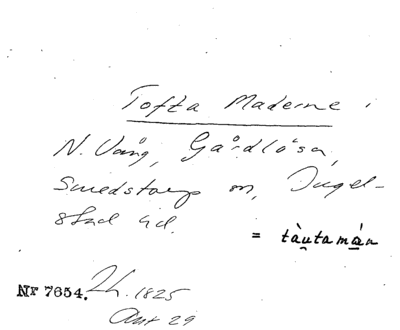 Tofta Maderne i
N. Vång, Gårdlösa,
Smedstorps sn, Ingel-
stad hd.
= tàu̯tamá̱n
Nr 7654. Lh. 1825
Ant 29